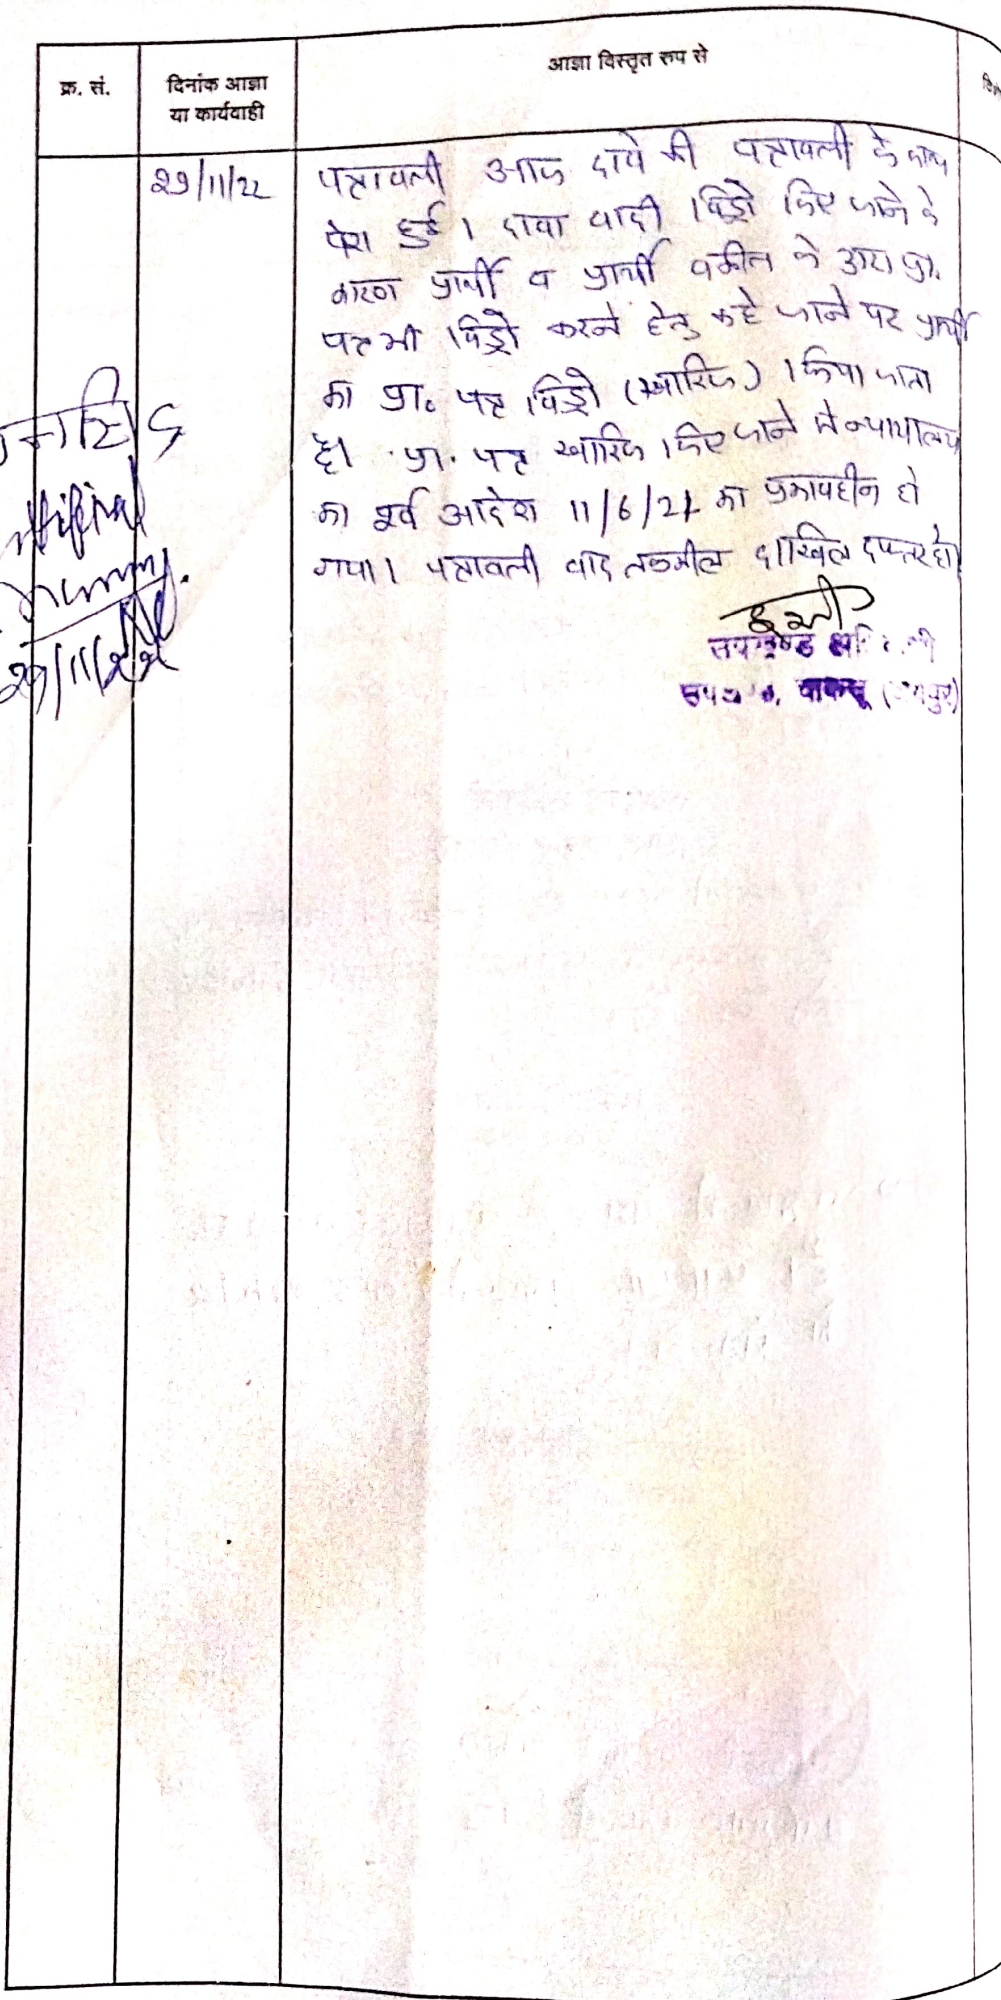 क्र. सं.
दिनांक आज्ञा
या कार्यवाही
आज्ञा विस्तृत रुप से
29/11/22
पत्रावली आज दावे की पत्रावली के साथ
पेश हुई। दावा वादी विड्रो किए जाने के
कारण प्रार्थी व प्रार्थी वकील के द्वारा प्रा.
पत्र भी विड्रो करने हेतु कहे जाने पर प्रार्थी
का प्रा. पत्र विड्रो (खारिज) किया जाता
है। प्रा. पत्र खारिज किए जाने से न्यायालय
का पूर्व आदेश 11/6/21 का प्रभावहीन हो
गया। पत्रावली बाद तकमील दाखिल दफ्तर हो।
29/11/22
उपखण्ड
चाकसू